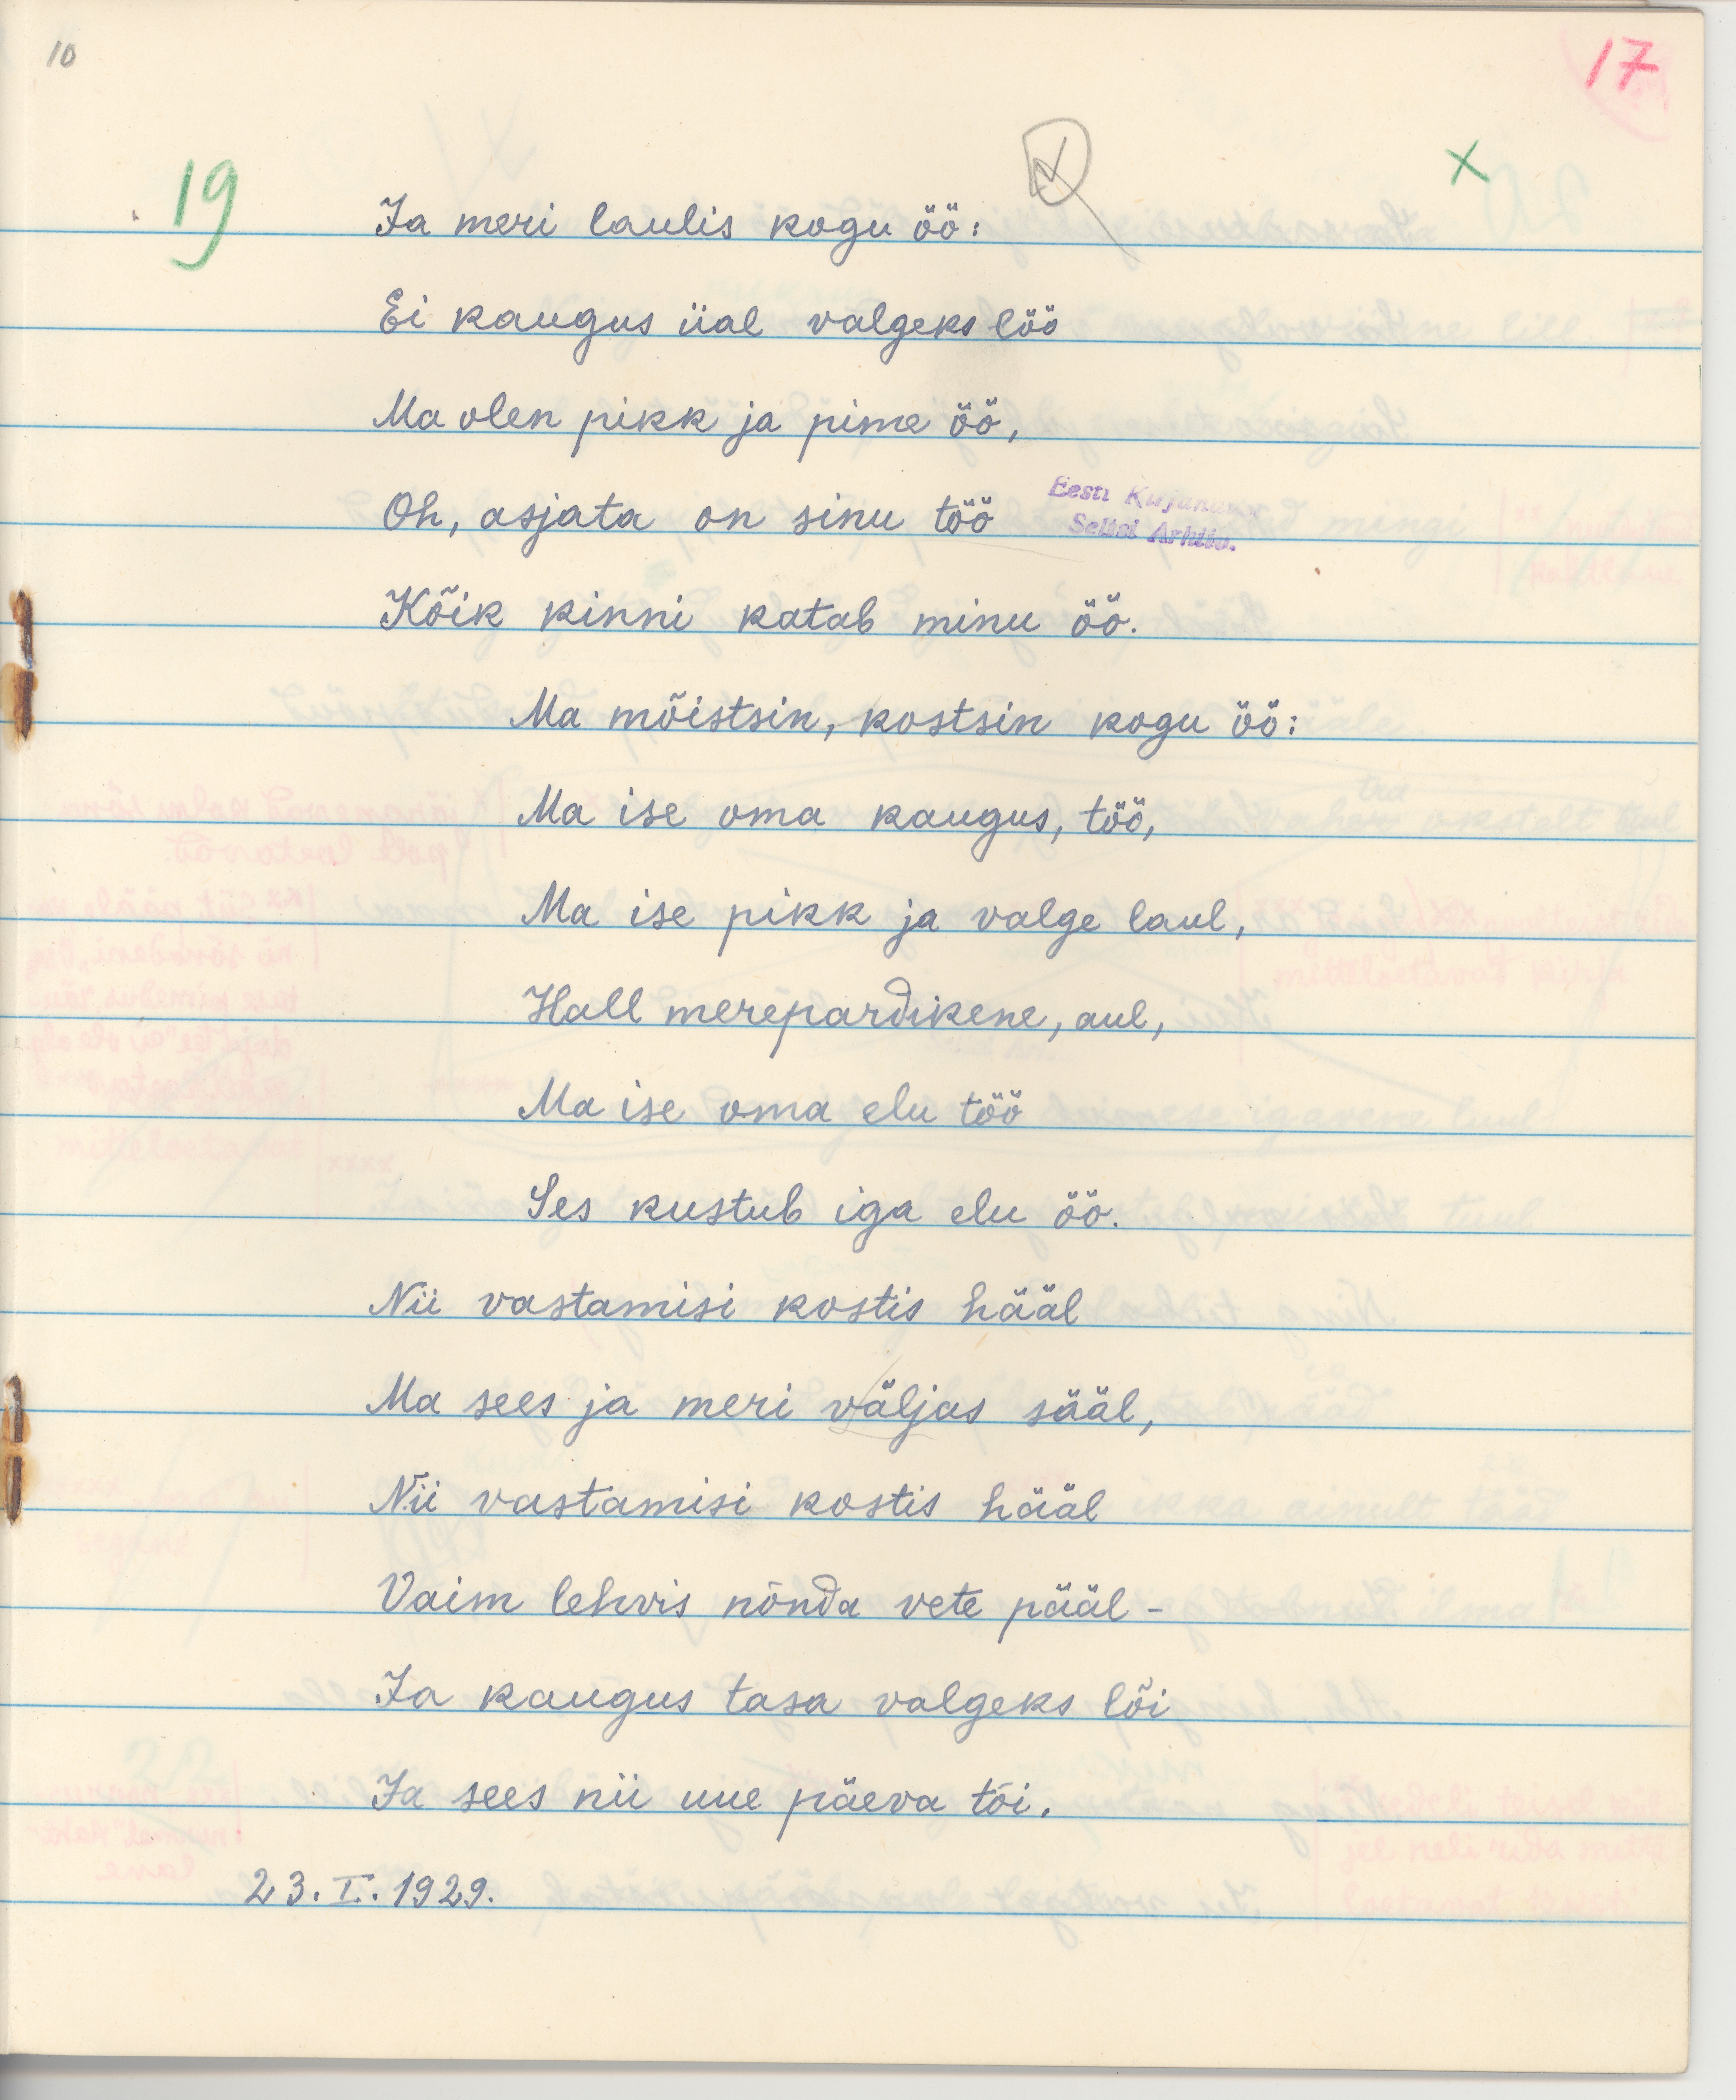 10
17
19
x
Ja meri laulis kogu öö:
Ei kaugus iial valgeks löö
Ma olen pikk ja pime öö,
Oh, asjata on sinu töö
Eesti Kirjanduse
Seltsi Arhiiv.
Kõik kinni katab minu öö.
Ma mõistsin, kostsin kogu öö:
Ma ise oma kaugus, töö,
Ma ise pikk ja valge laul,
Hall merepardikene, aul,
Ma ise oma elu töö
Ses kustub iga elu öö.
Nii vastamisi kostis hääl
Ma sees ja meri väljas sääl,
Nii vastamisi kostis hääl
Vaim lehvis nõnda vete pääl -
Ja kaugus tasa valgeks lõi
Ja sees nii uue päeva tõi.
23. I. 1929.